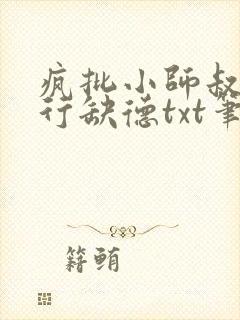 疯批小師叔
行缺德txt筆
籍鲔